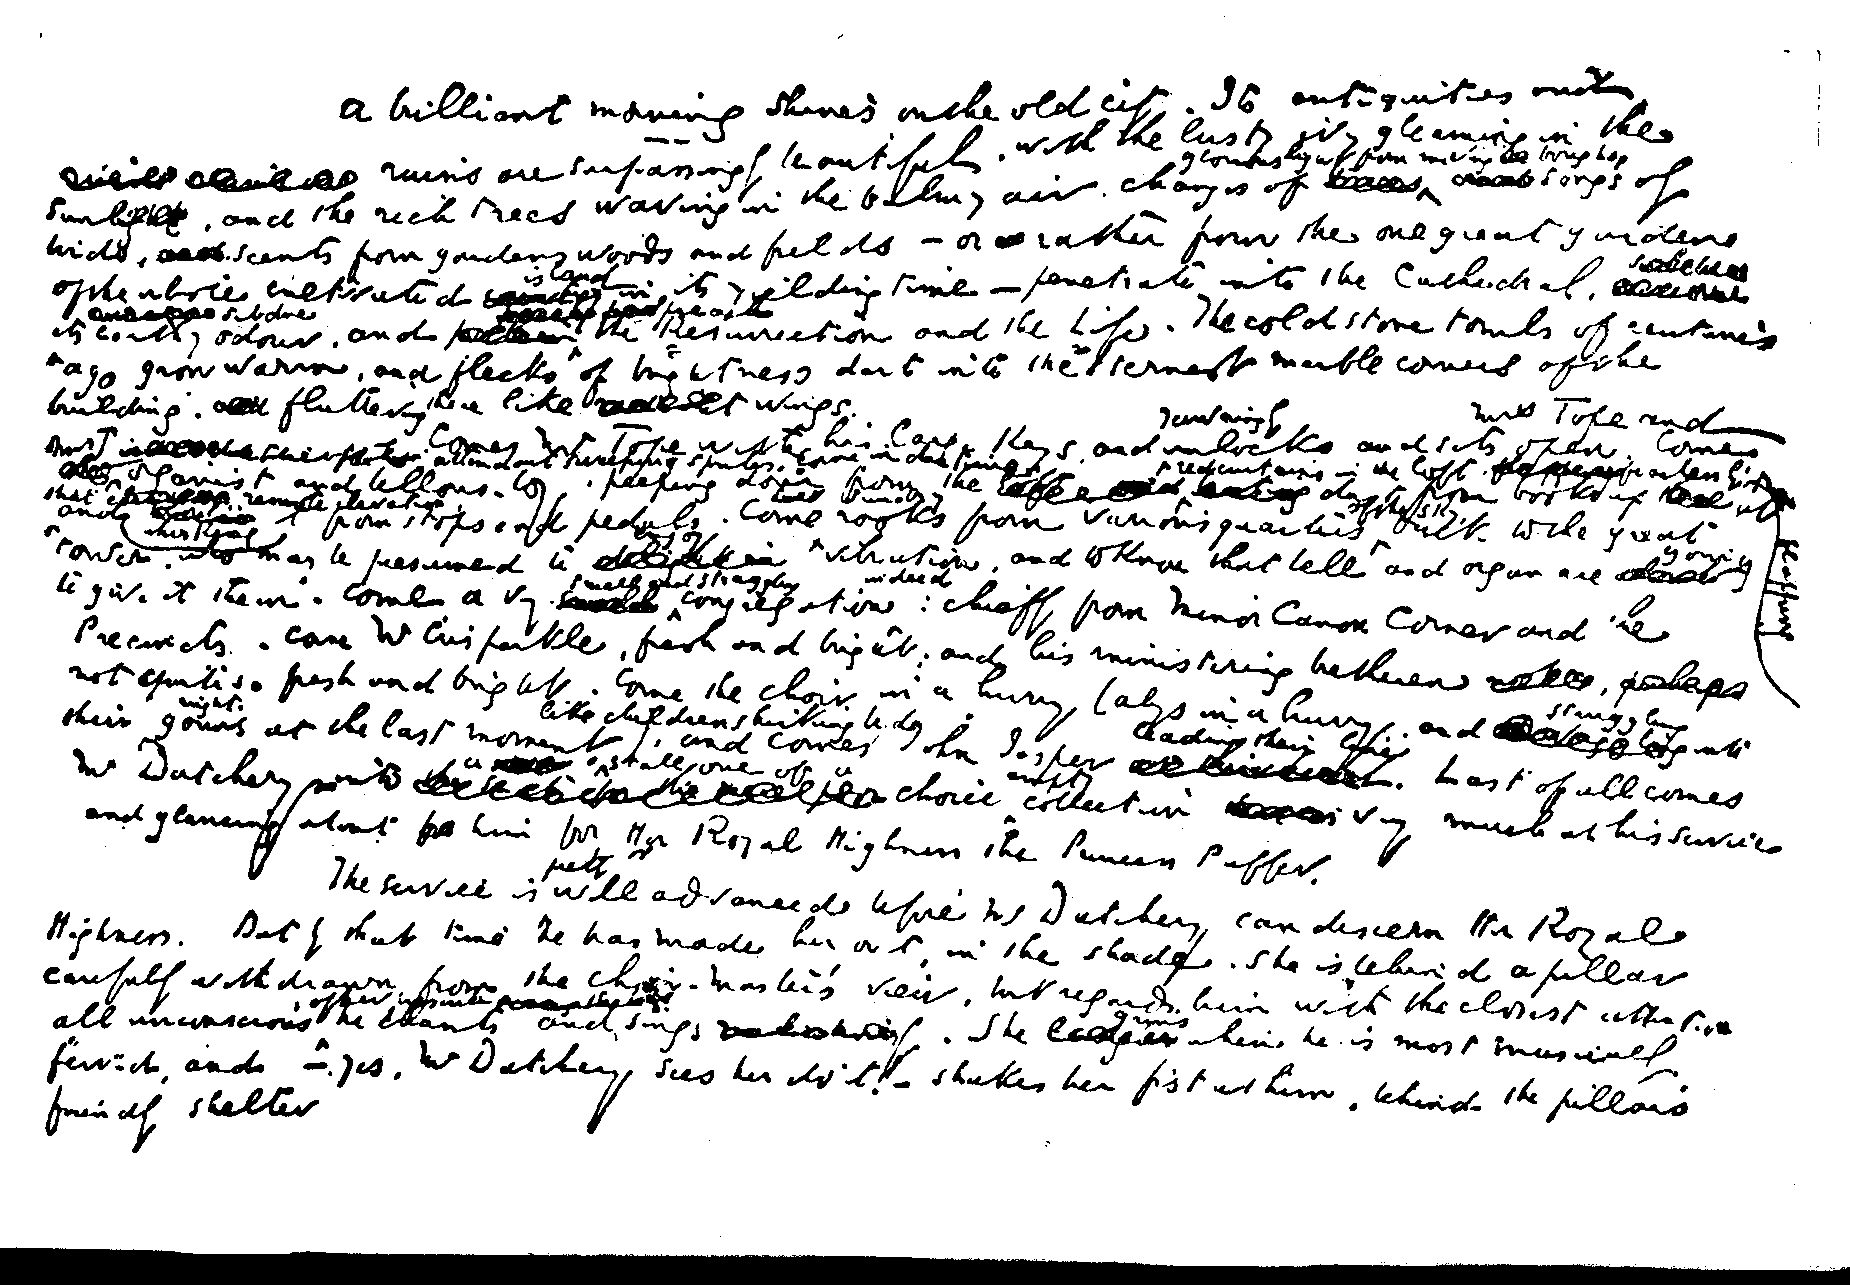 A brilliant morning shines on the old city. Its antiquities and
ruins are surpassingly beautiful, with the lusty ivy gleaming in the
gloriouslight from moving boughs
sunlight, and the rich trees waving in the balmy air. Changes of songs of
birds, scents from gardens woods and fields – or rather from the one great garden
island
of the whole cultivated in its yielding time – penetrate into the Cathedral,
subdue preach
its earthy odour, and the Resurrection and the Life. The cold stone tombs of centuries
ago grow warm, and flecks of brightness dart into the sternest marble corners of the
building, fluttering there like wings.
yawningly Mrs Tope and
Comes Mr Tope with his large Keys, and unlocks and sets open. Come
attendant sweeping sprites. Come in due time
organist and bellows-boy, peeping down from the red curtains in the loft flapping dust from books up
that remote elevation
and from stops and pedals. Come rooks from various quarters of the sky back to the great
tower, who may be presumed to enjoy vibration, and to know that bell and organ are going
small and straggling indeed
to give it them. Come a very congregation : chiefly from Minor Canon Corner and the
Precincts. Come Mr Crisparkle, fresh and bright; and his ministering brethren, perhaps
not quite so fresh and bright. Come the Choir in a hurry (always in a hurry, and struggling into
night
their gowns at the last moment, like children shirking bed), and comes John Jasper leading their line. Last of all comes
Mr Datchery into a stall, one of a choice empty collection very much at his service
and glancing about him for Her Royal Highness the Princess Puffer.
pretty
The service is well advanced before Mr Datchery can discern Her Royal
Highness. But by that time he has made her out, in the shade. She is behind a pillar
carefully withdrawn from the Choir-master's view, but regards him with the closest attention
all unconscious of her presence he chants and sings. She grins when he is most musically
fervid, and – yes, Mr Datchery sees her do it! – shakes her fist at him, behind the pillar's
friendly shelter